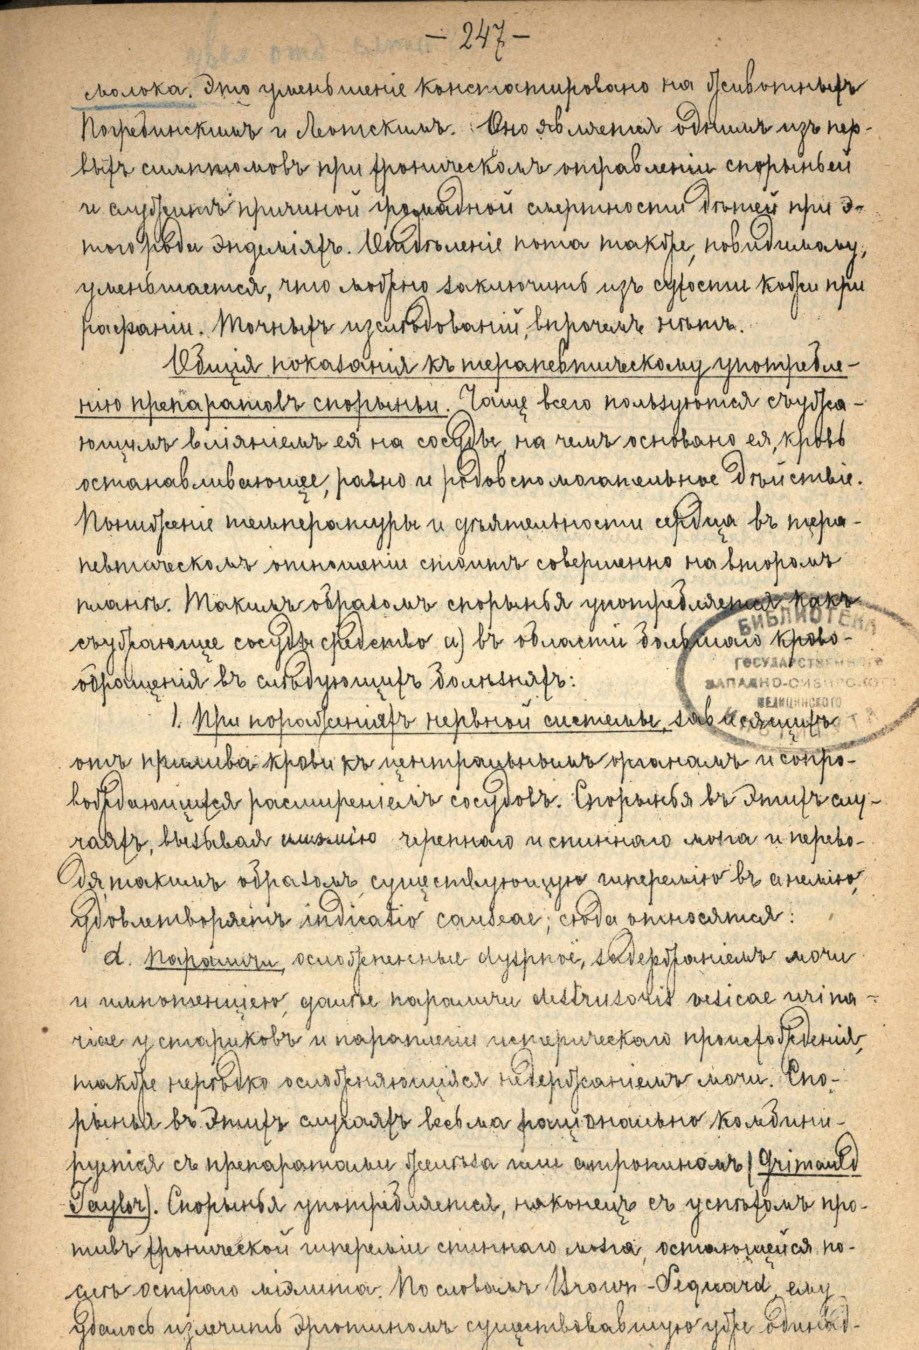 — 247 —
молока. Это уменьшеніе констатировано на животныхъ
Погребинскимъ и Леотскимъ. Оно является однимъ изъ пер-
выхъ симптомовъ при хроническомъ отравленіи спорыньей
и служитъ причиной громадной смертности дѣтей при э-
того рода эндеміяхъ. Отдѣленіе пота также, повидимому,
уменьшается, что можно заключить изъ сухости кожи при
рафаніи. Точныхъ изслѣдованій, впрочемъ нѣтъ.
Общія показанія къ терапевтическому употребле-
нію препаратовъ спорыньи. Чаще всего пользуются съужа-
ющимъ вліяніемъ ея на сосуды, на чемъ основано ея, кровь
останавливающее, равно и родовспомогательное дѣйствіе.
Пониженіе температуры и дѣятельности сердца въ тера-
певтическомъ отношеніи стоитъ совершенно на второмъ
планѣ. Такимъ образомъ спорынья употребляется какъ
съужающее сосуды средство а) въ области большаго крово-
обращенія въ слѣдующихъ болѣзняхъ:
БИБЛИОТЕКА
ГОСУДАРСТВЕННОГО
ЗАПАДНО-СИБИРСКОГО
МЕДИЦИНСКОГО
1. При пораженіяхъ нервной системы, зависящихъ
отъ прилива крови къ центральнымъ органамъ и сопро-
вождающихся расширеніемъ сосудовъ. Спорынья въ этихъ слу-
чаяхъ, вызывая ишэмію черепнаго и спиннаго мозга и перево-
дя, такимъ образомъ, существующую гиперемію въ анемію,
удовлетворяетъ indicatio causeae; сюда относятся:
d. Параличи, осложненные dyspnoё, задержаніемъ мочи
и импотенціею, далѣе параличи detrusoris vesicae urina-
riae у стариковъ и параплегіи истерическаго происхожденія,
также нерѣдко осложняющіяся недержаніемъ мочи. Спо-
рынья въ этихъ случаяхъ весьма раціонально комбини-
руется съ препаратами желѣза или атропиномъ (Grimauld
Taylor). Спорынья употребляется, наконецъ съ успѣхомъ про-
тивъ хронической гипереміи спиннаго мозга, остающейся по-
слѣ остраго міэлита. По словамъ Brown-Sequard, ему
удалось излечить эрготиномъ существовавшую уже одинад-